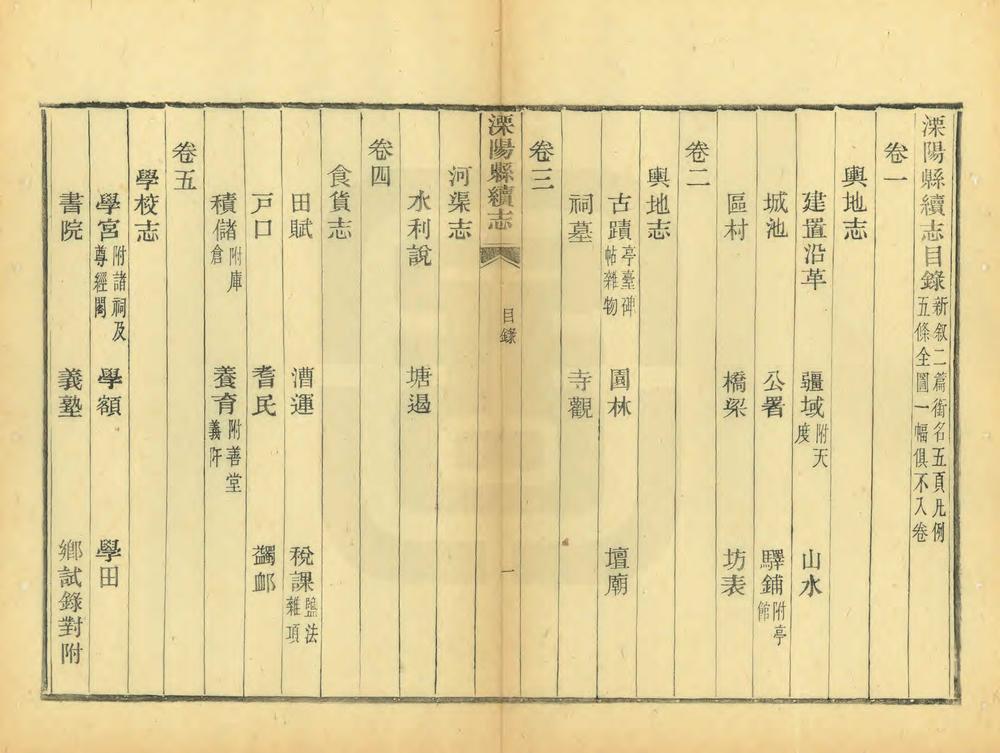 溧陽縣續志目錄新叙二篇銜名五頁凡例五條全圖一幅俱不入卷
卷一
輿地志
建置沿革 疆域附天度 山水
城池 公署 驛鋪附亭館
區村 橋梁 坊表
卷二
輿地志
古蹟亭臺碑帖雜物 園林 壇廟
祠墓 寺觀
卷三
溧陽縣續志 目錄 一
河渠志
水利說 塘遏
卷四
食貨志
田賦 漕運 稅課鹽法雜項
戸口 耆民 蠲卹
積儲附庫倉 養育附善堂義阡
卷五
學校志
學宮附諸祠及尊經閣 學額 學田
書院 義塾 鄉試錄對附